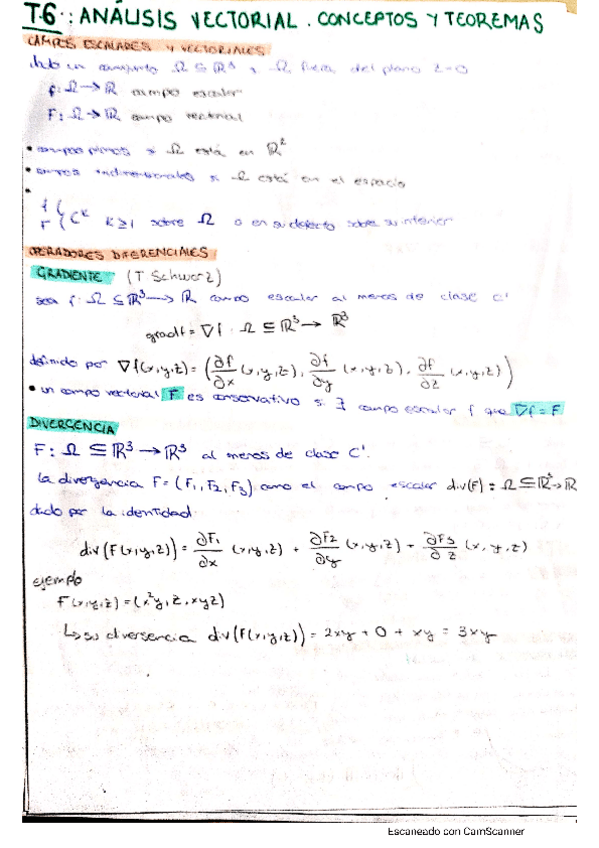 T.6: ANÁLISIS VECTORIAL. CONCEPTOS Y TEOREMAS
CAMPOS ESCALARES Y VECTORIALES
un conjunto Ω ⊆ ℝ³ Ω del plano z=0
f: Ω → ℝ campo escalar
F: Ω → ℝ campo vectorial
• campos planos si Ω está en ℝ²
• campos si Ω está en el espacio
•
f
F } Cᵏ K≥1 sobre Ω o en su defecto sobre su interior
OPERADORES DIFERENCIALES
GRADIENTE (T Schwarz)
sea f: Ω ⊆ ℝ³ → ℝ campo escalar al menos de clase C¹
gradf = ∇f : Ω ⊆ ℝ³ → ℝ³
definido por ∇f(x,y,z) = (∂f/∂x (x,y,z), ∂f/∂y (x,y,z), ∂f/∂z (x,y,z))
• un campo vectorial F es conservativo si ∃ campo escalar f que ∇f = F
DIVERGENCIA
F: Ω ⊆ ℝ³ → ℝ³ al menos de clase C¹.
la divergencia F = (F₁, F₂, F₃) como el campo escalar div(F) : Ω ⊆ → ℝ
dado por la identidad
div(F(x,y,z)) = ∂F₁/∂x (x,y,z) + ∂F2/∂y (x,y,z) + ∂F3/∂z (x,y,z)
ejemplo
F(x,y,z) = (x²y, z, xyz)
↳ su divergencia div(F(x,y,z)) = 2xy + 0 + xy = 3xy
Escaneado con CamScanner